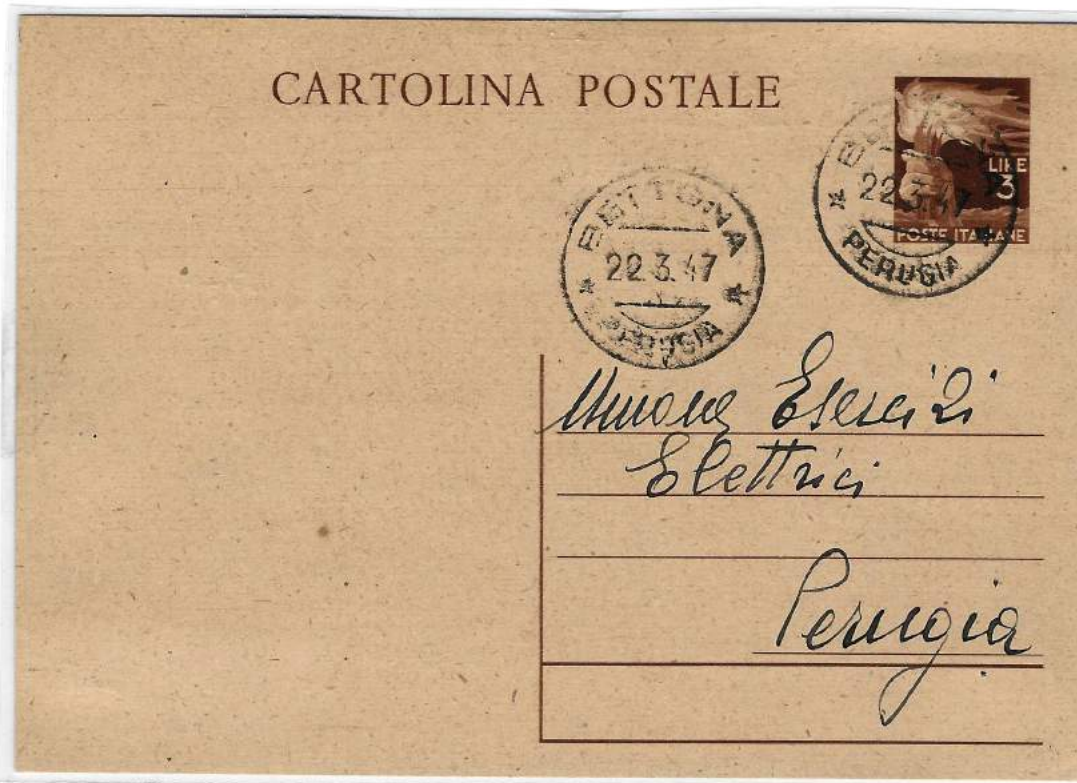 CARTOLINA POSTALE
LIRE
3
POSTE ITALIANE
BETTONA
22.3.47
PERUGIA
BETTONA
22.3.47
PERUGIA
Unione Esercizi
Elettrici
Perugia